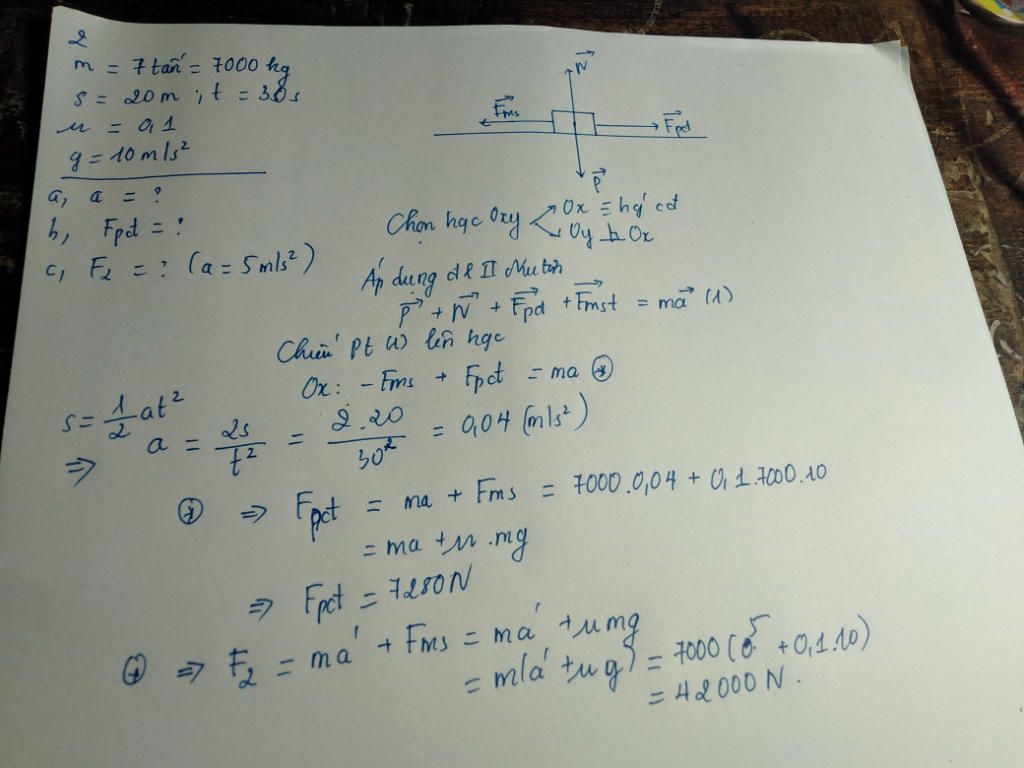 2
m = 7 tấn = 7000 kg
s = 20 m ; t = 30s
μ = 0,1
g = 10 m/s²
a, a = ?
b, Fpđ = ?
c, F₂ = ? (a = 5 m/s²)
N→
Fms→
Fpđ→
P→
Chọn hqc Oxy
Ox ≡ hg' cđ
Oy ⊥ Ox
Áp dụng đl II Niu tơn
P→ + N→ + Fpđ→ + Fmst→ = ma→ (1)
Chiếu pt (1) lên hqc
Ox: - Fms + Fpđ = ma ⊛
s = 1/2 at²
⇒ a = 2s/t² = 2.20/30² = 0,04 (m/s²)
⊛ ⇒ Fpđ = ma + Fms = 7000.0,04 + 0,1.7000.10
= ma + μ.mg
⇒ Fpđ = 7280N
⊛ ⇒ F₂ = ma' + Fms = ma' + μmg
= m(a' + μg) = 7000 (5 + 0,1.10)
= 42000 N.